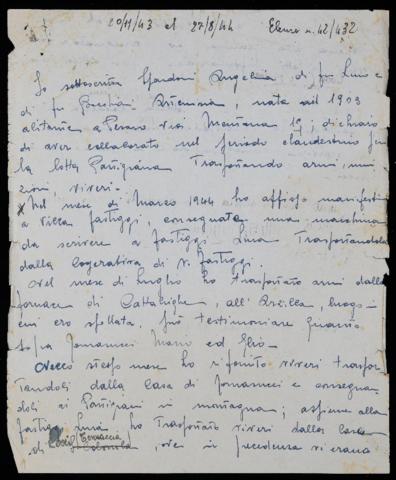 20/11/43 al 27/8/44 Elenco n. 42/432
Io sottoscritta Spadoni Angelina di fu Luigi e
di fu Artemisia, nata nel 1903
abitante a Pesaro via Mentana 19; dichiaro
di aver collaborato nel periodo clandestino per
la lotta Partigiana Trasportando armi, muni
zioni, viveri.
Nel mese di Marzo 1944 ho affisso manifesti
a Villa Fastiggi, consegnata una macchina
da scrivere a Fastiggi Luca Trasportandola
dalla Cooperativa di V. Fastiggi.
Nel mese di Luglio ho trasportato armi dalla
fornace di Cattabrighe, all' Arzilla, luogo in
cui ero sfollata. Può testimoniare quanto
sopra Jomanucci Mario ed Elio.
Nello stesso mese ho rifornito viveri traspor
Tandoli dalla Casa di Jomanucci e consegnan
doli ai Partigiani in montagna; assieme alla
Fastiggi Luca, ho Trasportato viveri dalla Casa
di , ove in precedenza vi erano